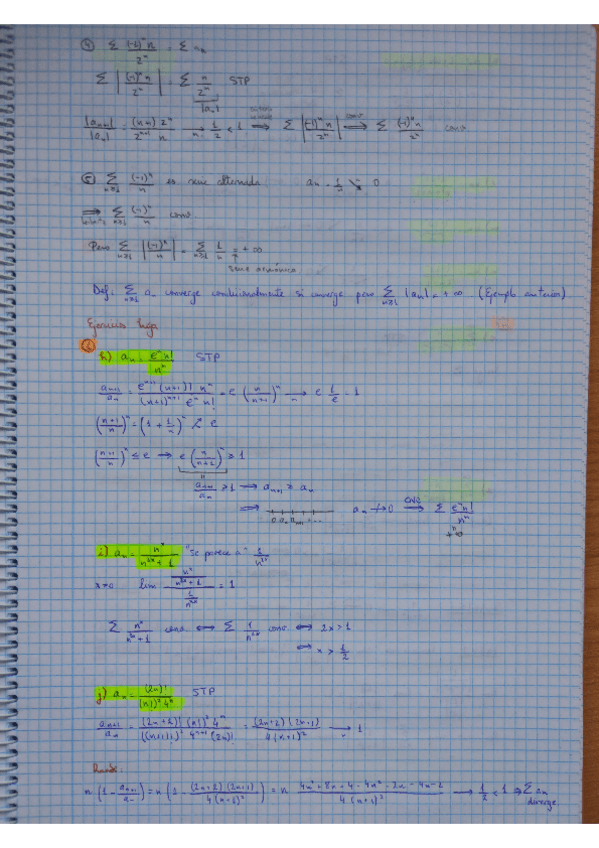 ④ Σ (-1)ⁿ n / 2ⁿ = Σ aₙ
Σ |(-1)ⁿ n / 2ⁿ| = Σ n / 2ⁿ STP
|aₙ|
|aₙ₊₁| / |aₙ| = (n+1) 2ⁿ / 2ⁿ⁺¹ n → 1/2 < 1 ⟹ Σ |(-1)ⁿ n / 2ⁿ| ⟹ Σ (-1)ⁿ n / 2ⁿ conv
⑤ Σ n≥1 (-1)ⁿ / n es serie alternada aₙ = 1/n ↘ 0
⟹ Σ n≥1 (-1)ⁿ / n conv.
Pero Σ n≥1 |(-1)ⁿ / n| = Σ n≥1 1/n = +∞
serie armónica
Def: Σ n≥1 aₙ converge condicionalmente si converge pero Σ n≥1 |aₙ| = +∞ (Ejemplo anterior)
Ejercicios hoja
h) aₙ = eⁿ n! / nⁿ STP
aₙ₊₁ / aₙ = eⁿ⁺¹ (n+1)! nⁿ / (n+1)ⁿ⁺¹ eⁿ n! = e (n / n+1)ⁿ → e 1/e = 1
(n+1 / n)ⁿ = (1 + 1/n)ⁿ ↗ e
(n+1 / n)ⁿ ≤ e ⟹ e (n / n+1)ⁿ ≥ 1
aₙ₊₁ / aₙ ≥ 1 ⟹ aₙ₊₁ ≥ aₙ
⟹ aₙ ↛ 0 ⟹ Σ eⁿ n! / nⁿ
+∞
i) aₙ = nˣ / n²ˣ + 1 "Se parece a" 1 / n²ˣ
x≠0 lim (nˣ / n²ˣ + 1) / (1 / n²ˣ) = 1
Σ nˣ / n²ˣ + 1 conv ⟺ Σ 1 / n²ˣ conv ⟺ 2x > 1
⟺ x > 1/2
j) aₙ = (2n)! / (n!)² 4ⁿ STP
aₙ₊₁ / aₙ = (2n+2)! (n!)² 4ⁿ / ((n+1)!)² 4ⁿ⁺¹ (2n)! = (2n+2)(2n+1) / 4(n+1)² → 1
Raabe:
n (1 - aₙ₊₁ / aₙ) = n (1 - (2n+2)(2n+1) / 4(n+1)²) = n 4n² + 8n + 4 - 4n² - 2n - 4n - 2 / 4(n+1)² → 1/2 < 1 ⟹ Σ aₙ
diverge